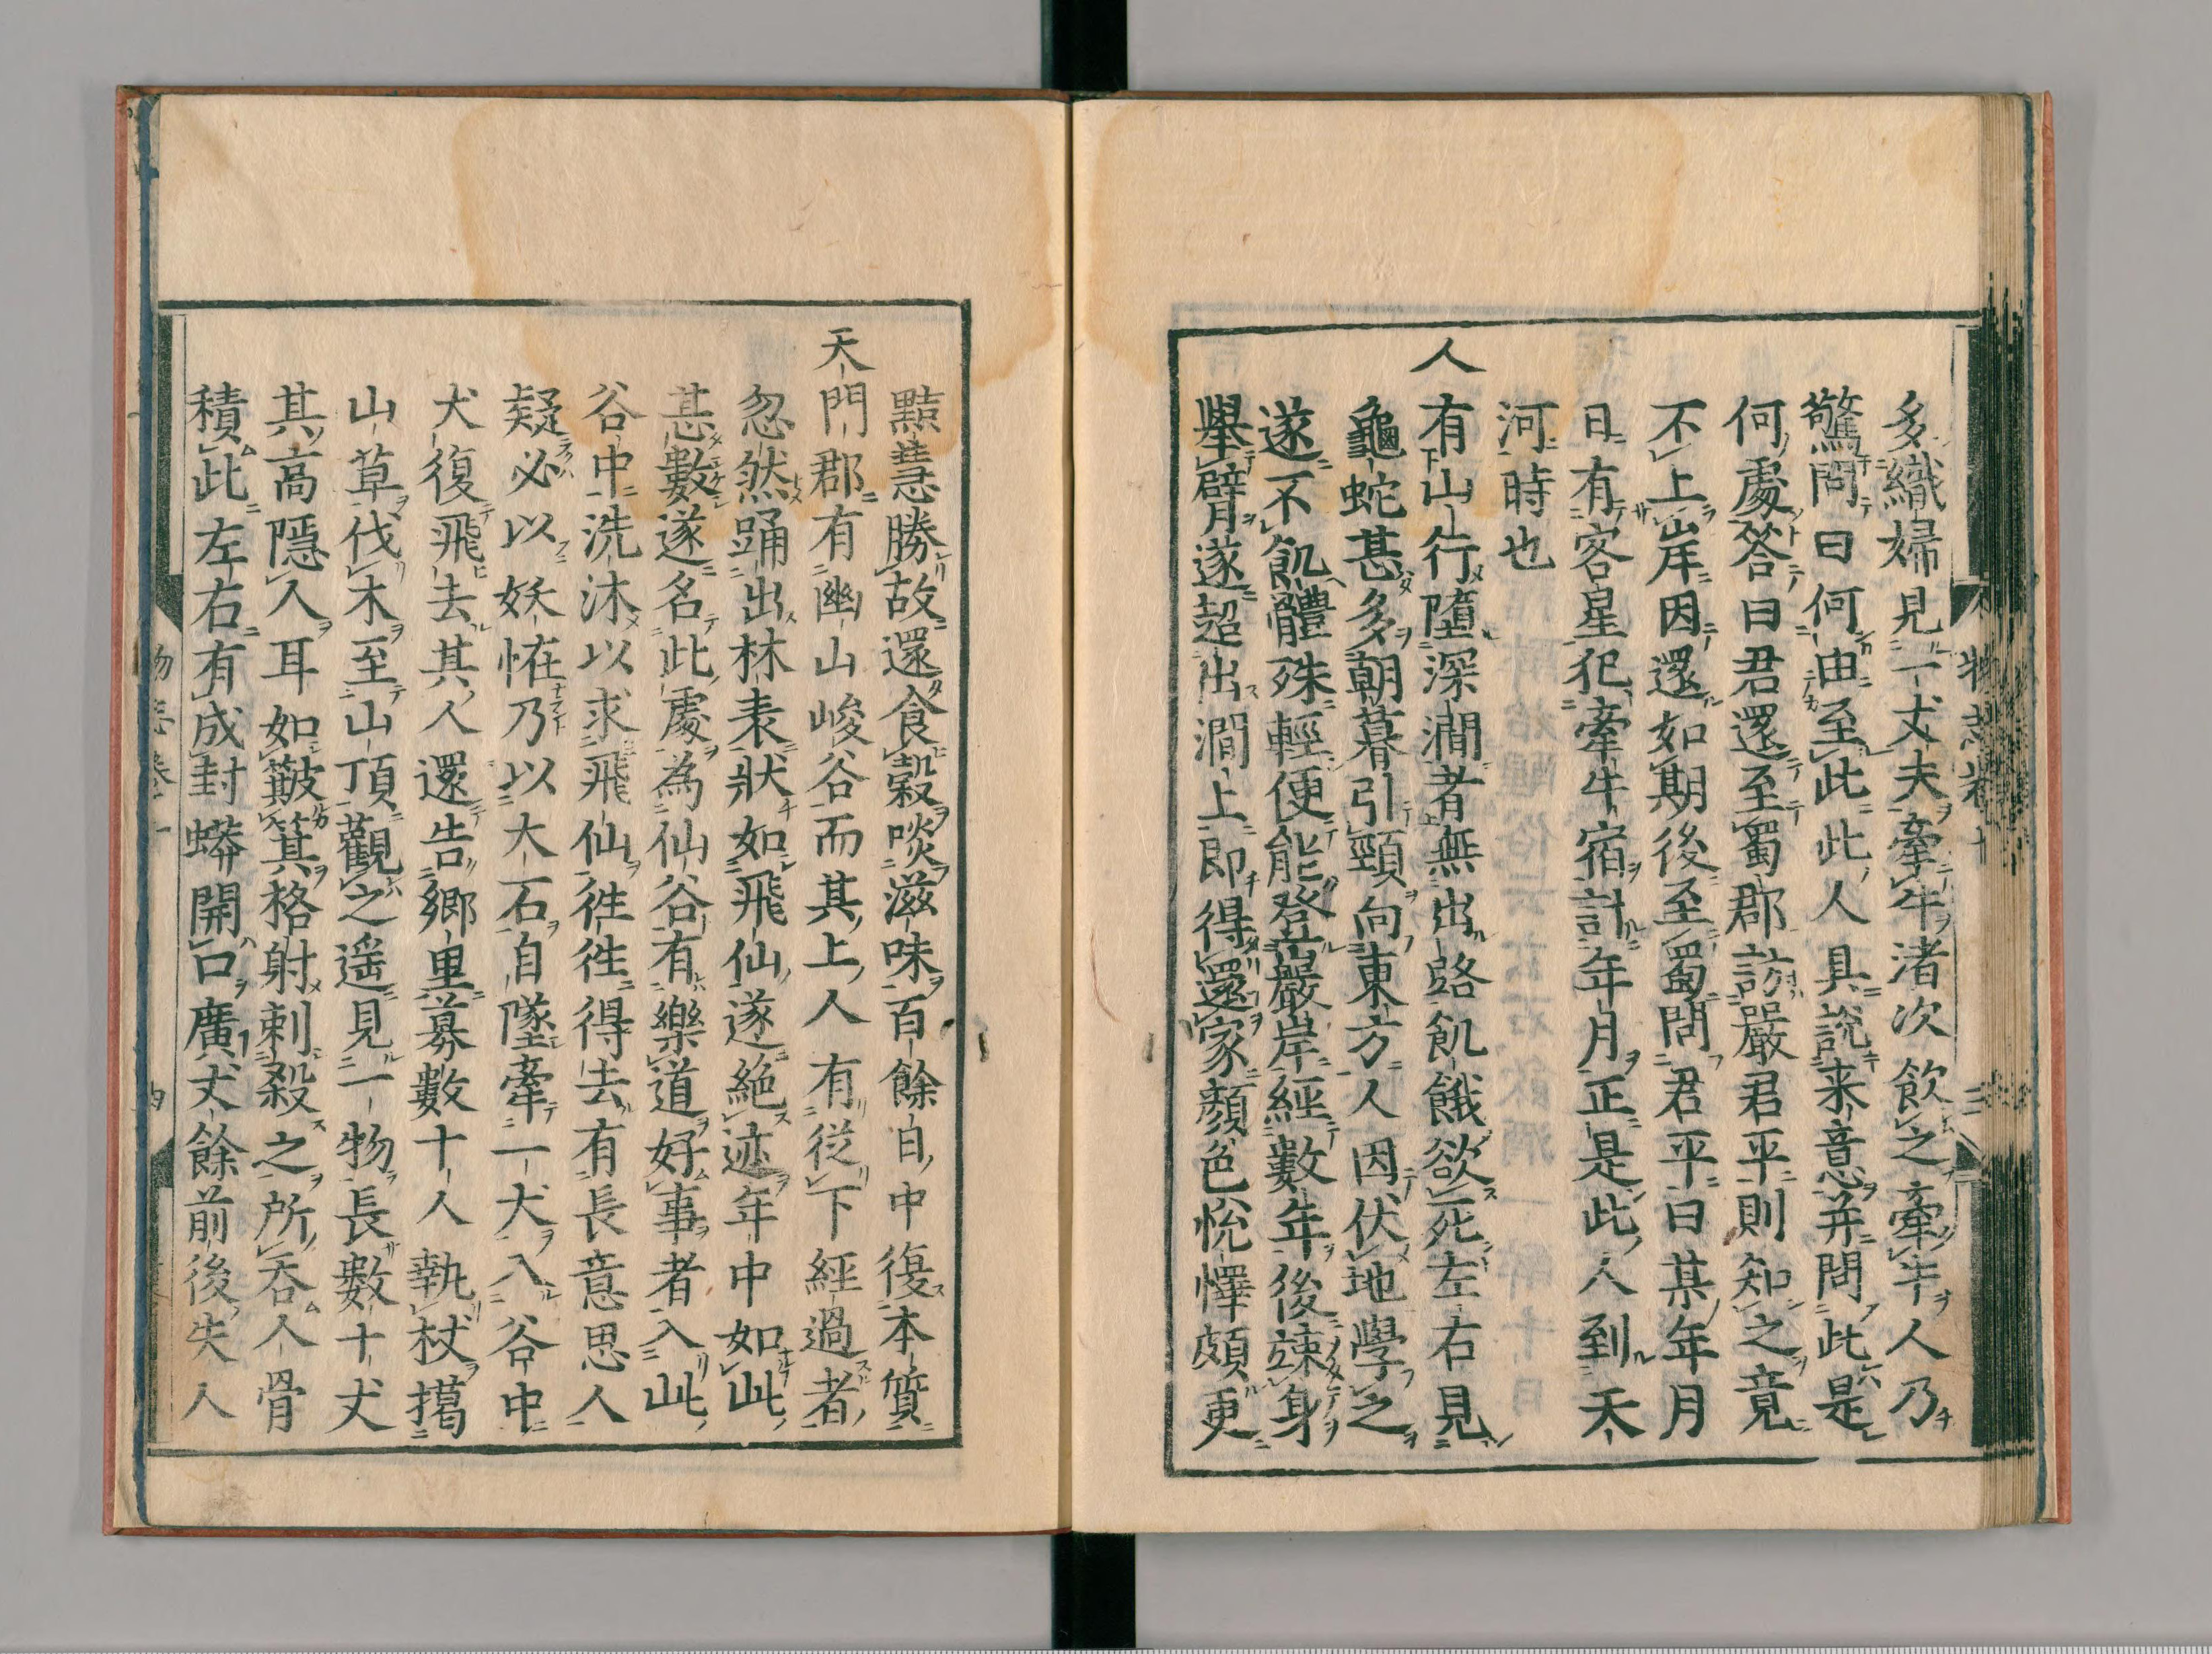 多織婦見一丈夫牽牛渚次飲之牽牛人乃
驚問曰何由至此此人具說来意并問此是
何處答曰君還至蜀郡訪嚴君平則知之竟
不上岸因還如期後至蜀問君平曰某年月
日有客星犯牽牛宿計年月正是此人到天
河時也
人有山行墮深澗者無出路飢餓欲死左右見
龜蛇甚多朝暮引頸向東方人因伏地學之
遂不飢體殊輕便能登巖岸經數年後竦身
舉臂遂超出澗上即得還家顏色悅懌頗更
黠慧勝故還食穀啖滋味百餘日中復本質
天門郡有幽山峻谷而其上人有從下經過者
忽然踊出林表狀如飛仙遂絶迹年中如此
甚數遂名此處為仙谷有樂道好事者入此
谷中洗沐以求飛仙徃徃得去有長意思人
疑必以妖恠乃以大石自墜牽一犬入谷中
犬復飛去其人還告鄉里募數十人執杖撝
山草伐木至山頂觀之遥見一物長數十丈
其高隱人耳如簸箕格射刺殺之所吞人骨
積此左右有成封蟒開口廣丈餘前後失人